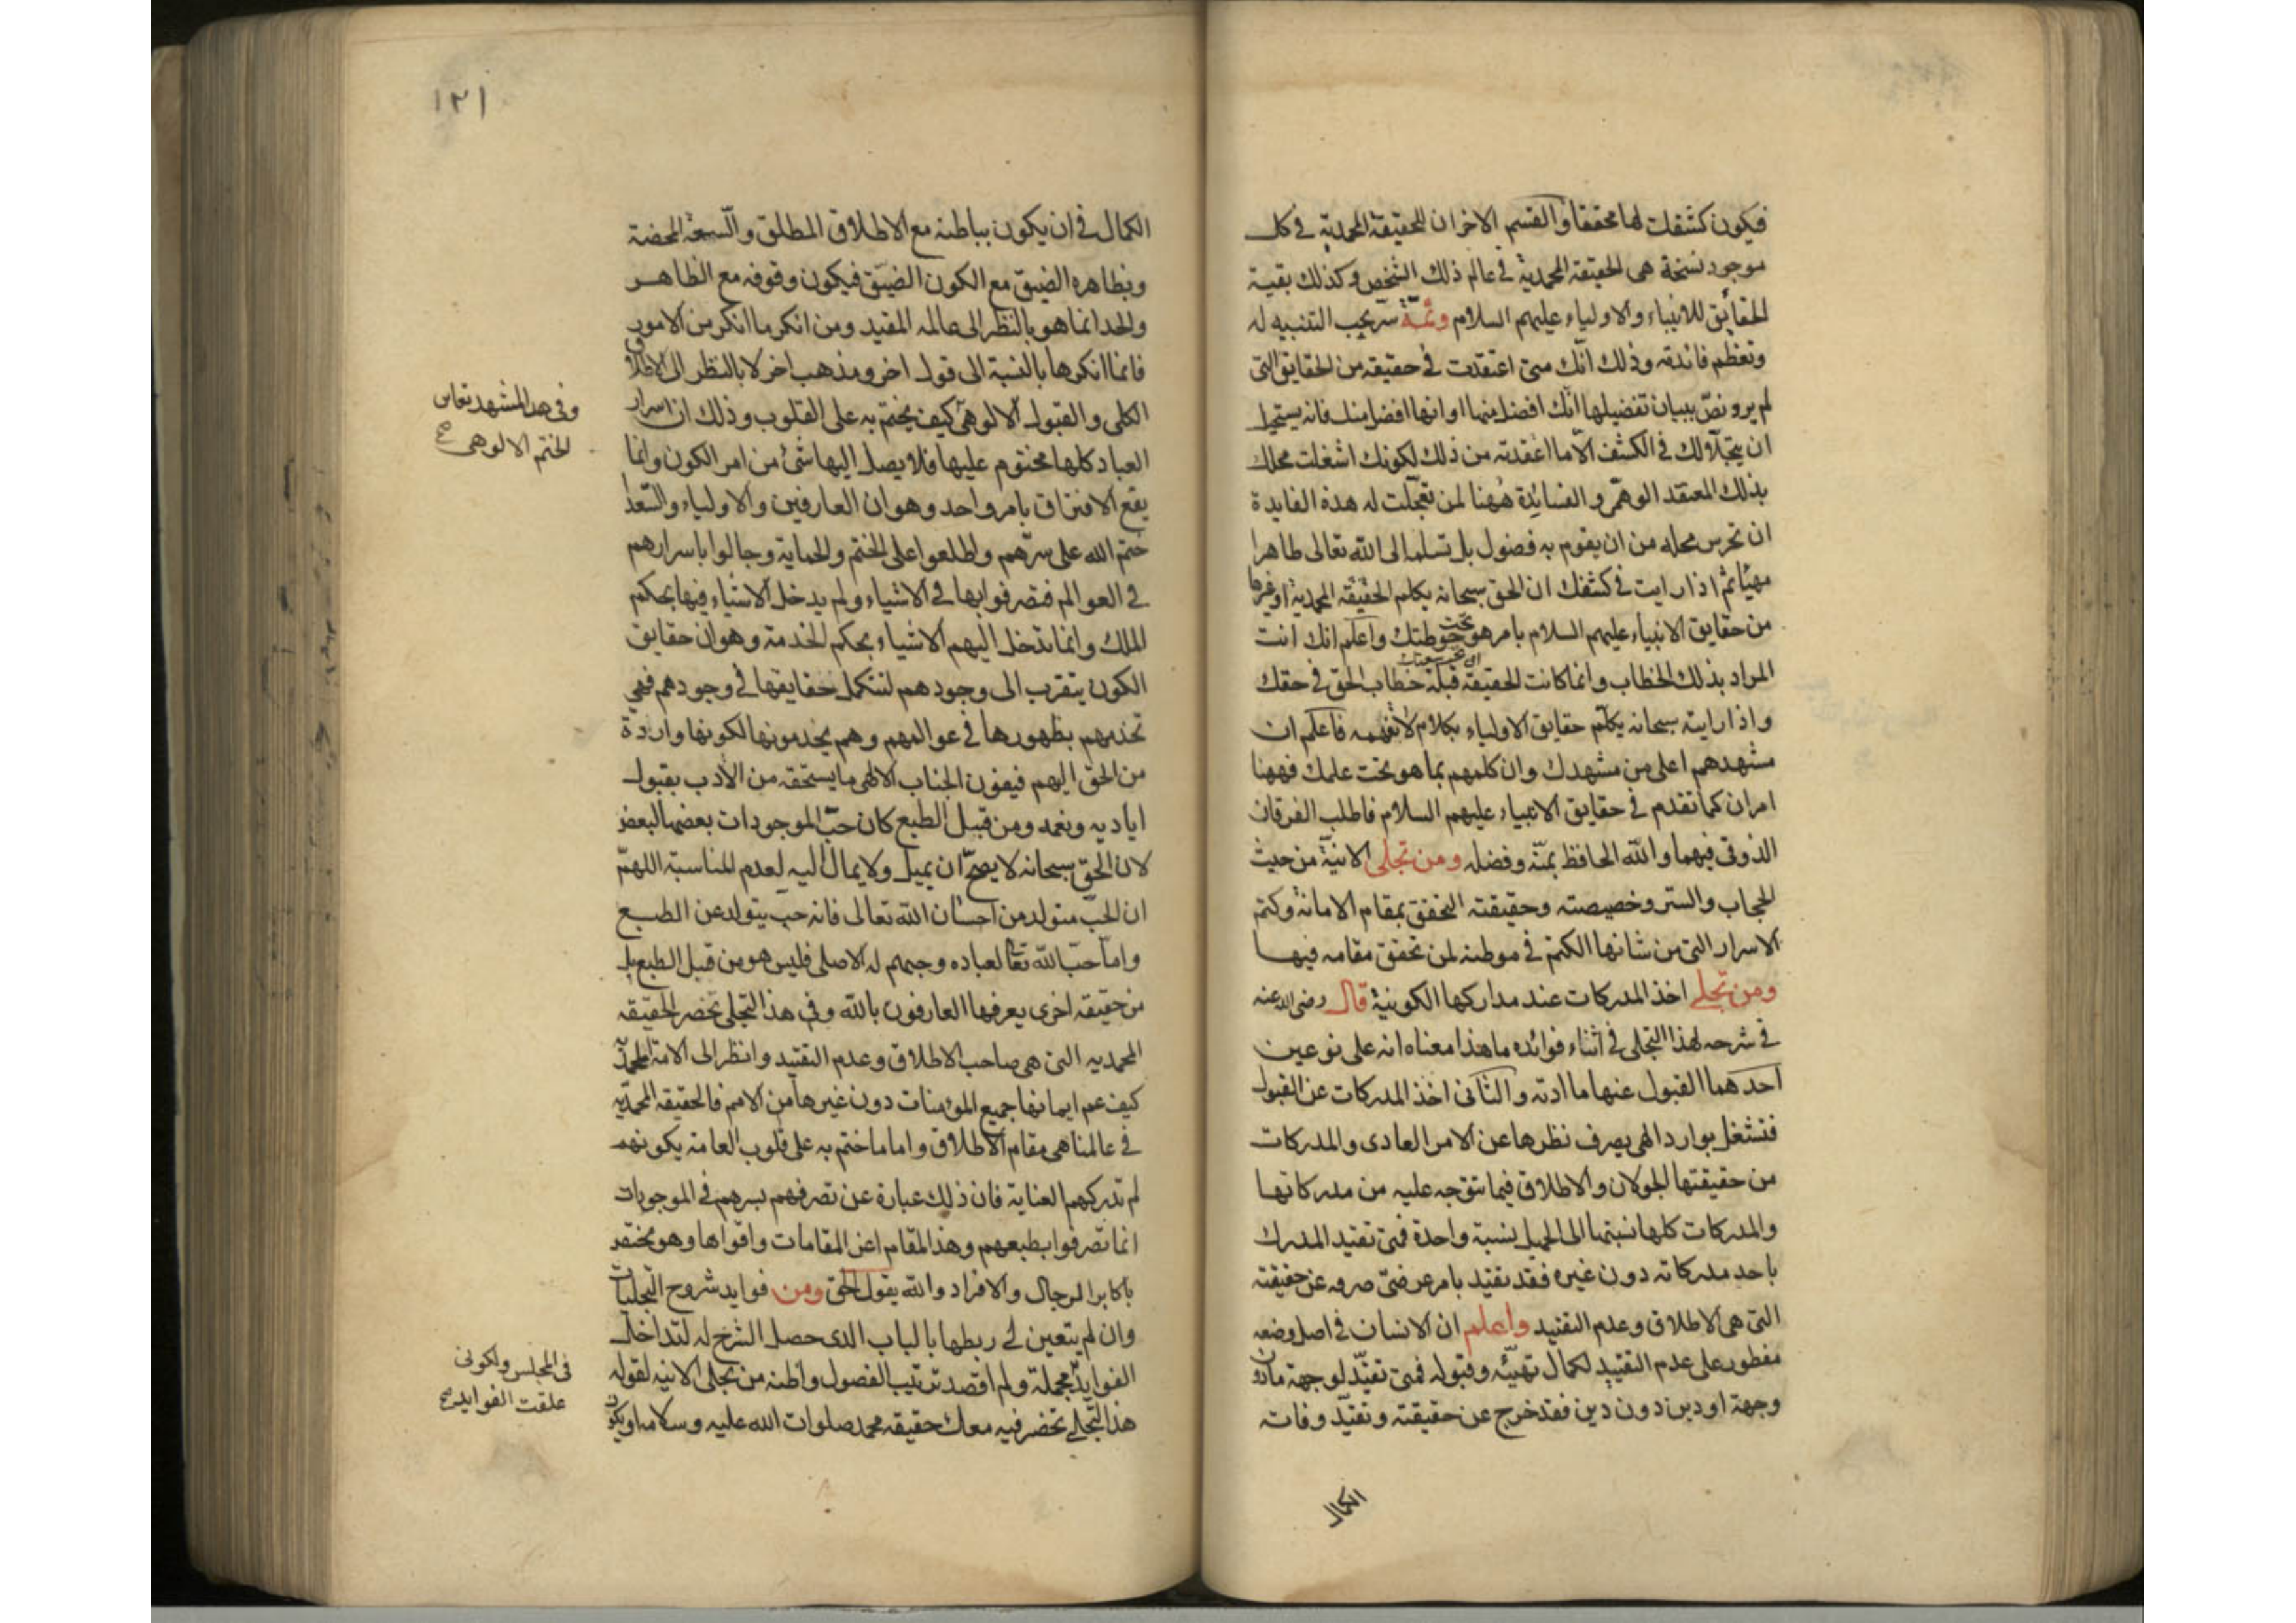 فيكون كشفك لها محققا والقسم الاخر ان للحقيقة المحمدية في كل
موجود نسخة هي الحقيقة المحمدية في عالم ذلك الشخص وكذلك بقية
الحقائق للانبياء والاولياء عليهم السلام وثمة سر يجب التنبيه له
وتعظم فائدته وذلك انك متى اعتقدت في حقيقة من الحقايق التي
لم يرو نص ببيان تفضيلها انك افضل منها او انها افضل منك فانه يستحيل
ان يتجلا لك في الكشف الا ما اعتقدته من ذلك لكونك اشغلت محلك
بذلك المعتقد الوهمي والفائدة ههنا لمن تعجلت له هذه الفايدة
ان تحرس محله من ان يقوم به فضول بل تسلمه الى الله تعالى طاهرا
مهيئا ثم اذا رايت في كشفك ان الحق سبحانه يكلم الحقيقة المحمدية او غيرها
من حقايق الانبياء عليهم السلام بامر هو تحت حوطتك واعلم انك انت
المراد بذلك الخطاب وانما كانت الحقيقة قبلة خطاب الحق في حقك
واذا رايته سبحانه يكلم حقايق الاولياء بكلام لا تفهمه فاعلم ان
مشهدهم اعلى من مشهدك وان كلمهم بما هو تحت علمك فههنا
امران كما تقدم في حقايق الانبياء عليهم السلام فاطلب الفرقان
الذوقي فيهما والله الحافظ بمنه وفضله ومن تجلى الانية من حيث
الحجاب والستر وخصيصته وحقيقته التحقق بمقام الامانة وكتم
الاسرار التي من شانها الكتم في موطنه لمن تحقق مقامه فيها
ومن تجلي اخذ المدركات عند مداركها الكونية قال رضي الله عنه
في شرحه لهذا التجلي في اثناء فوائده ما هذا معناه انه على نوعين
احدهما القبول عنها ما ادته والثاني اخذ المدركات عن القبول
فتشغل بوارد الهي يصرف نظرها عن الامر العادي والمدركات
من حقيقتها الجولان والاطلاق فيما تتوجه عليه من مدركاتها
والمدركات كلها نسبتها الى نسبة واحدة فمتى تقيد المدرك
باحد مدركاته دون غيره فقد تقيد بامر عرضي صرفه عن حقيقته
التي هي الاطلاق وعدم التقييد واعلم ان الانسان في اصل وضعه
مفطور على عدم التقييد لكمال تهيئه وقبوله فمتى تقيد لوجهة ما دون
وجهة او دين دون دين فقد خرج عن حقيقته وتقيد وفاته
الكمال
١٢١
الكمال في ان يكون بباطنه مع الاطلاق المطلق والسعة المحضة
وبظاهره الضيق مع الكون الضيق فيكون وقوفه مع الظاهر
والحد انما هو بالنظر الى عالمه المقيد ومن انكر ما انكر من الامور
فانما انكرها بالنسبة الى قول اخر ومذهب اخر لا بالنظر الى الاطلاق
الكلي والقبول الالوهي كيف يختم به على القلوب وذلك ان اسرار
العباد كلها مختوم عليها فلا يصل اليها شئ من امر الكون وانما
يقع الافتراق بامر واحد وهو ان العارفين والاولياء والسعدا
ختم الله على سرهم واطلعوا على الختم والحماية وجالوا باسرارهم
في العوالم فتصرفوا بها في الاشياء ولم يدخل الاشياء فيها بحكم
الملك وانما تدخل اليهم الاشياء بحكم الخدمة وهو ان حقايق
الكون يتقرب الى وجودهم لتتكمل حقايقها في وجودهم فهي
تخدمهم بظهورها في عوالمهم وهم يخدمونها لكونها واردة
من الحق اليهم فيفون الجناب الالهي ما يستحقه من الادب بقبول
اياديه ونعمه ومن قبيل الطبع كان حب الموجودات بعضها لبعض
لان الحق سبحانه لا يصح ان يميل ولا يمال اليه لعدم المناسبة اللهم
ان الحب متولد من احسان الله تعالى فانه حب يتولد عن الطبع
واما حب الله تعالى لعباده وحبهم له الاصلي فليس هو من قبل الطبع بل
من حقيقة اخرى يعرفها العارفون بالله وفي هذا التجلي تحضر الحقيقة
المحمدية التي هي صاحب الاطلاق وعدم التقييد وانظر الى الامة المحمدية
كيف عم ايمانها جميع المؤمنات دون غيرها من الامم فالحقيقة المحمدية
في عالمنا هي مقام الاطلاق واما ما ختم به على قلوب العامة يكونهم
لم تدركهم العناية فان ذلك عبارة عن تصرفهم بسرهم في الموجودات
انما تصرفوا بطبعهم وهذا المقام اعز المقامات واقواها وهو مختص
باكابر الرجال والافراد والله يقول الحق ومن فوايد شروح التجليات
وان لم يتعين لي ربطها بالباب الذي حصل الشرح له لتداخل
الفوايد مجملة ولم اقصد ترتيب الفصول واظنه من تجلي الانية لقوله
هذا التجلي تحضر فيه معك حقيقة محمد صلوات الله عليه وسلامه او يكون
وفي هذا المشهد تعاين
الختم الالوهي صح
في المجلس ولكوني
علقت الفوايد صح